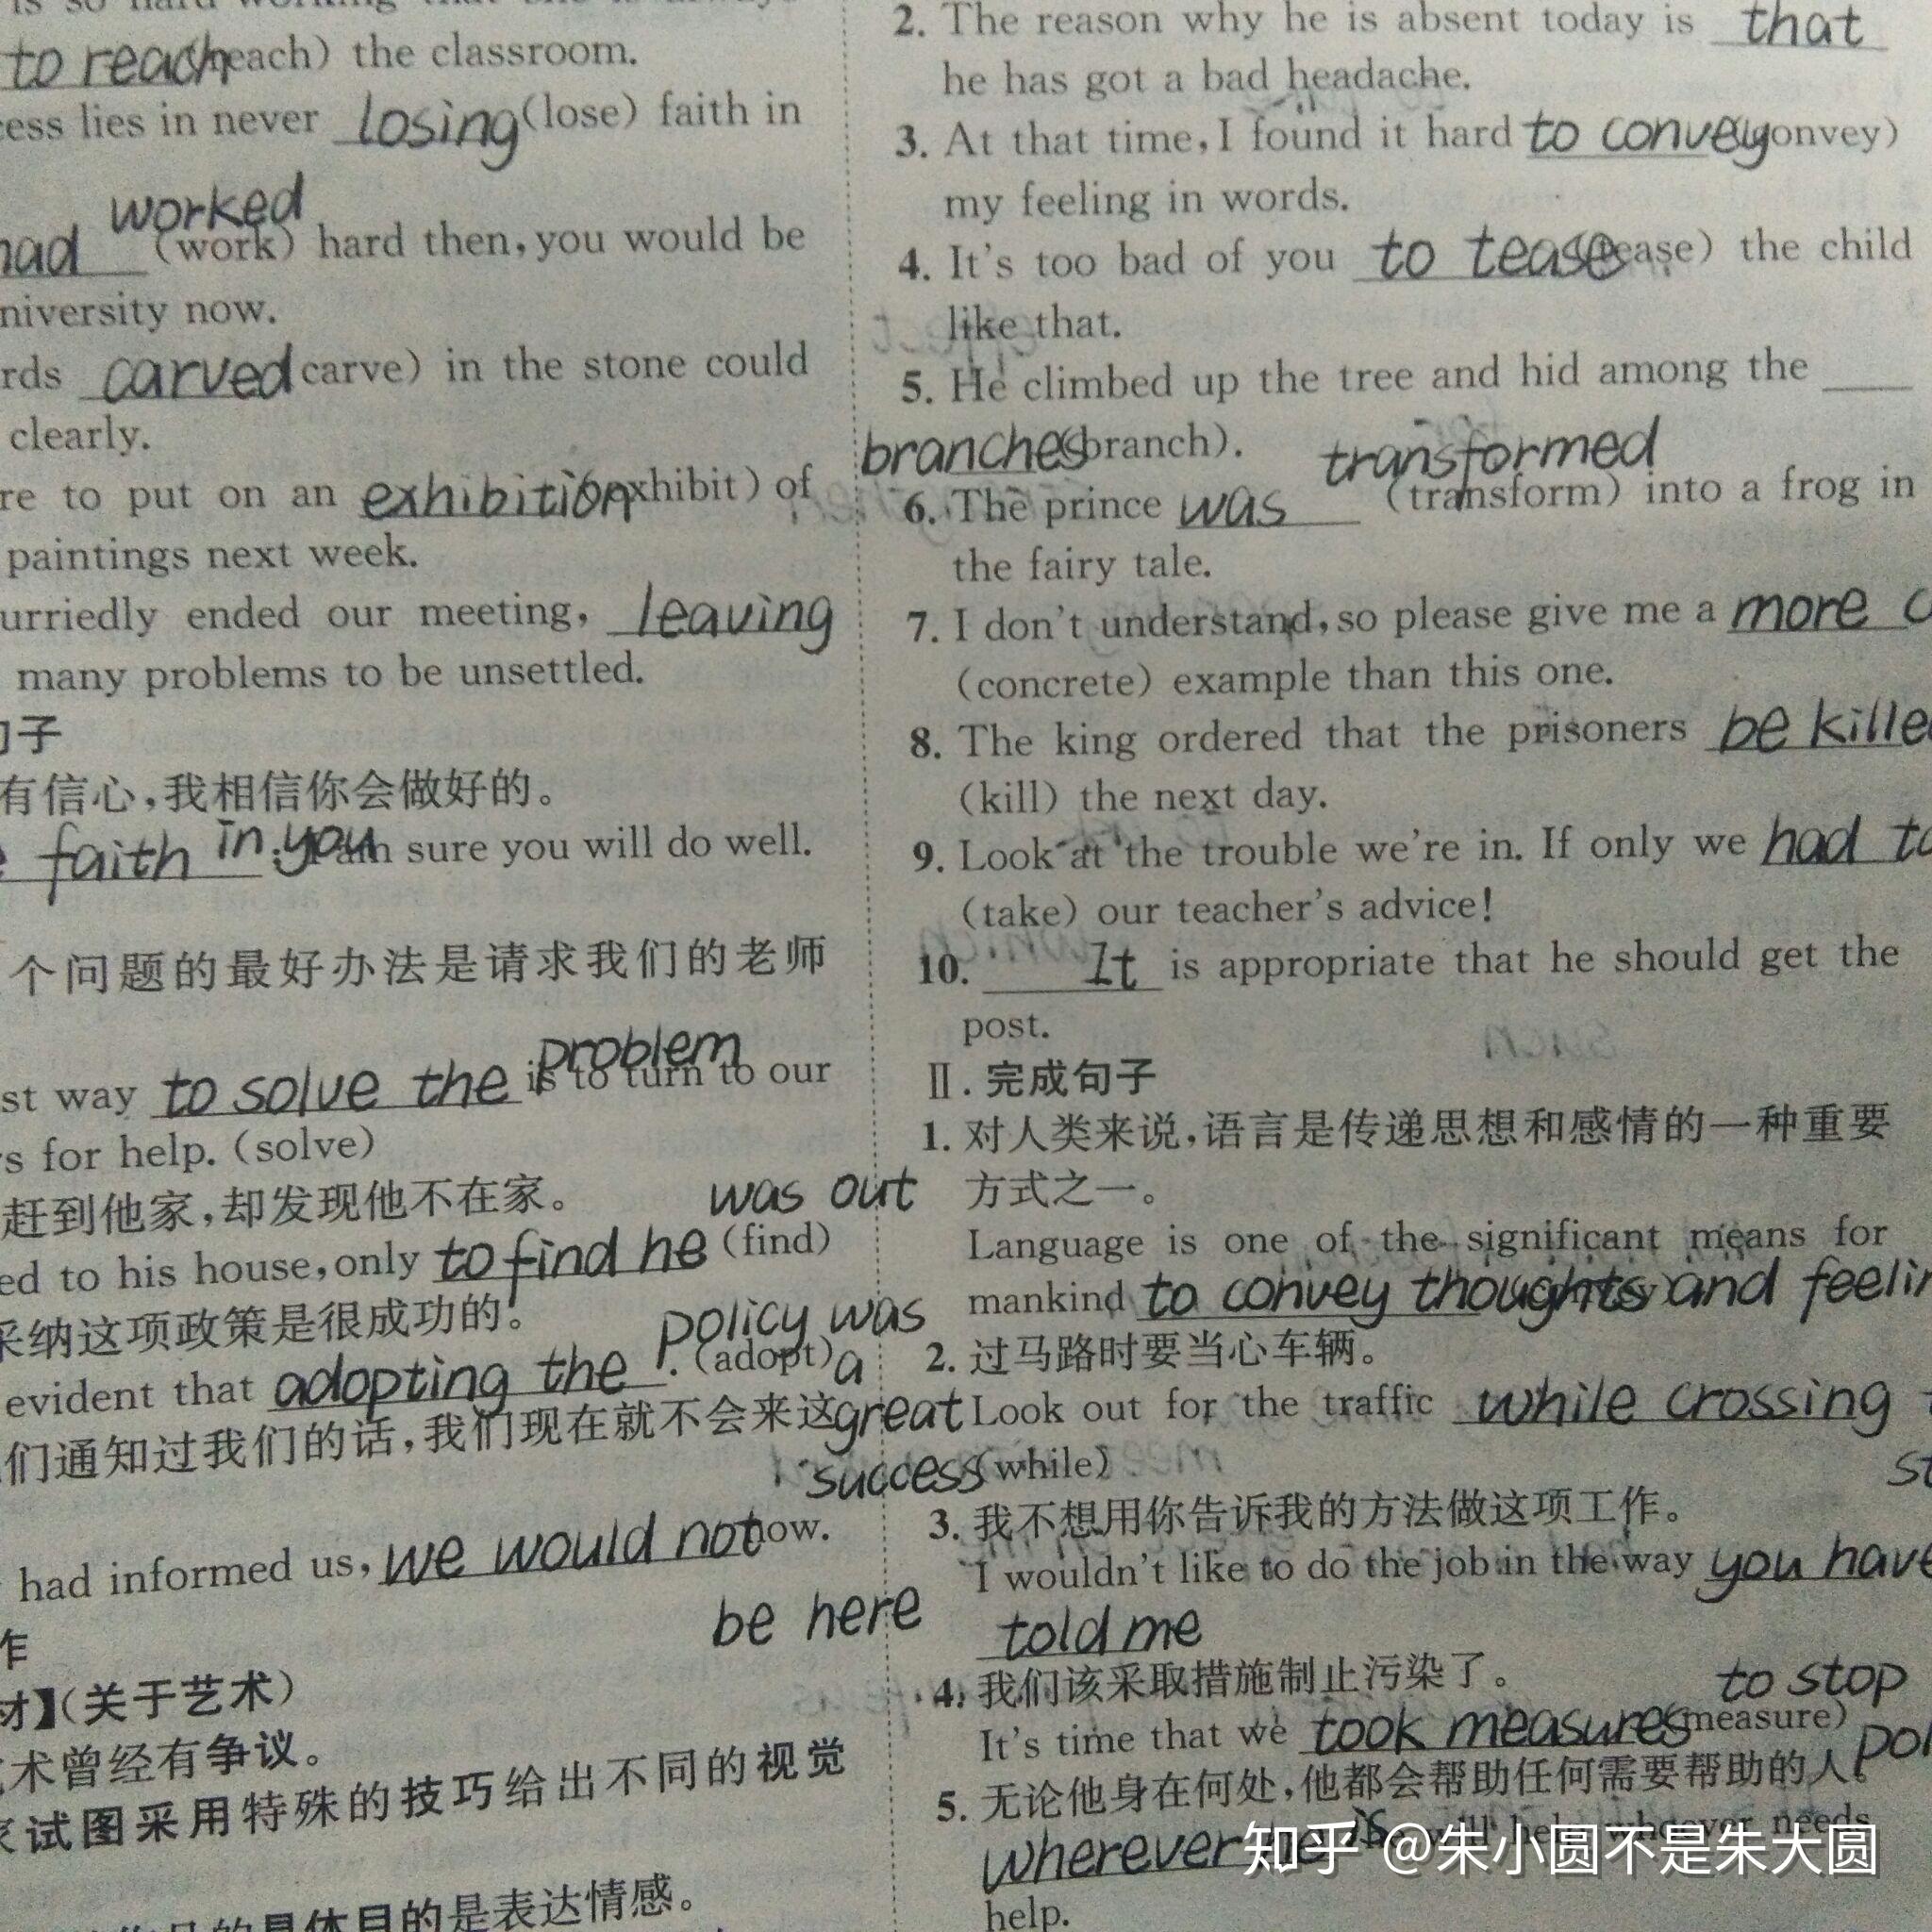 is so hard-working that she is always
to reach (reach) the classroom.
cess lies in never losing (lose) faith in
worked
had (work) hard then, you would be
niversity now.
rds carved (carve) in the stone could
clearly.
re to put on an exhibition (exhibit) of
paintings next week.
urriedly ended our meeting, leaving
many problems to be unsettled.
句子
有信心,我相信你会做好的。
faith in you. I am sure you will do well.
个问题的最好办法是请求我们的老师
problem
st way to solve the is to turn to our
s for help. (solve)
赶到他家,却发现他不在家。
was out
ed to his house, only to find he (find)
采纳这项政策是很成功的。
policy was
evident that adopting the . (adopt) a
们通知过我们的话,我们现在就不会来这
great
success
had informed us, we would not now.
be here
作
材】(关于艺术)
术曾经有争议。
家试图采用特殊的技巧给出不同的视觉
具体目的是表达情感。
2. The reason why he is absent today is that
he has got a bad headache.
3. At that time, I found it hard to convey (convey)
my feeling in words.
4. It's too bad of you to tease (tease) the child
like that.
5. He climbed up the tree and hid among the
branches (branch).
transformed
6. The prince was (transform) into a frog in
the fairy tale.
7. I don't understand, so please give me a more c
(concrete) example than this one.
8. The king ordered that the prisoners be kille
(kill) the next day.
9. Look at the trouble we're in. If only we had ta
(take) our teacher's advice!
10. It is appropriate that he should get the
post.
Ⅱ. 完成句子
1. 对人类来说,语言是传递思想和感情的一种重要
方式之一。
Language is one of the significant means for
mankind to convey thoughts and feelin
2. 过马路时要当心车辆。
Look out for the traffic while crossing t
(while)
st
3. 我不想用你告诉我的方法做这项工作。
I wouldn't like to do the job in the way you have
told me
4. 我们该采取措施制止污染了。
to stop
It's time that we took measures (measure)
pol
5. 无论他身在何处,他都会帮助任何需要帮助的人。
wherever he is he will help whoever needs
help.
知乎 @朱小圆不是朱大圆